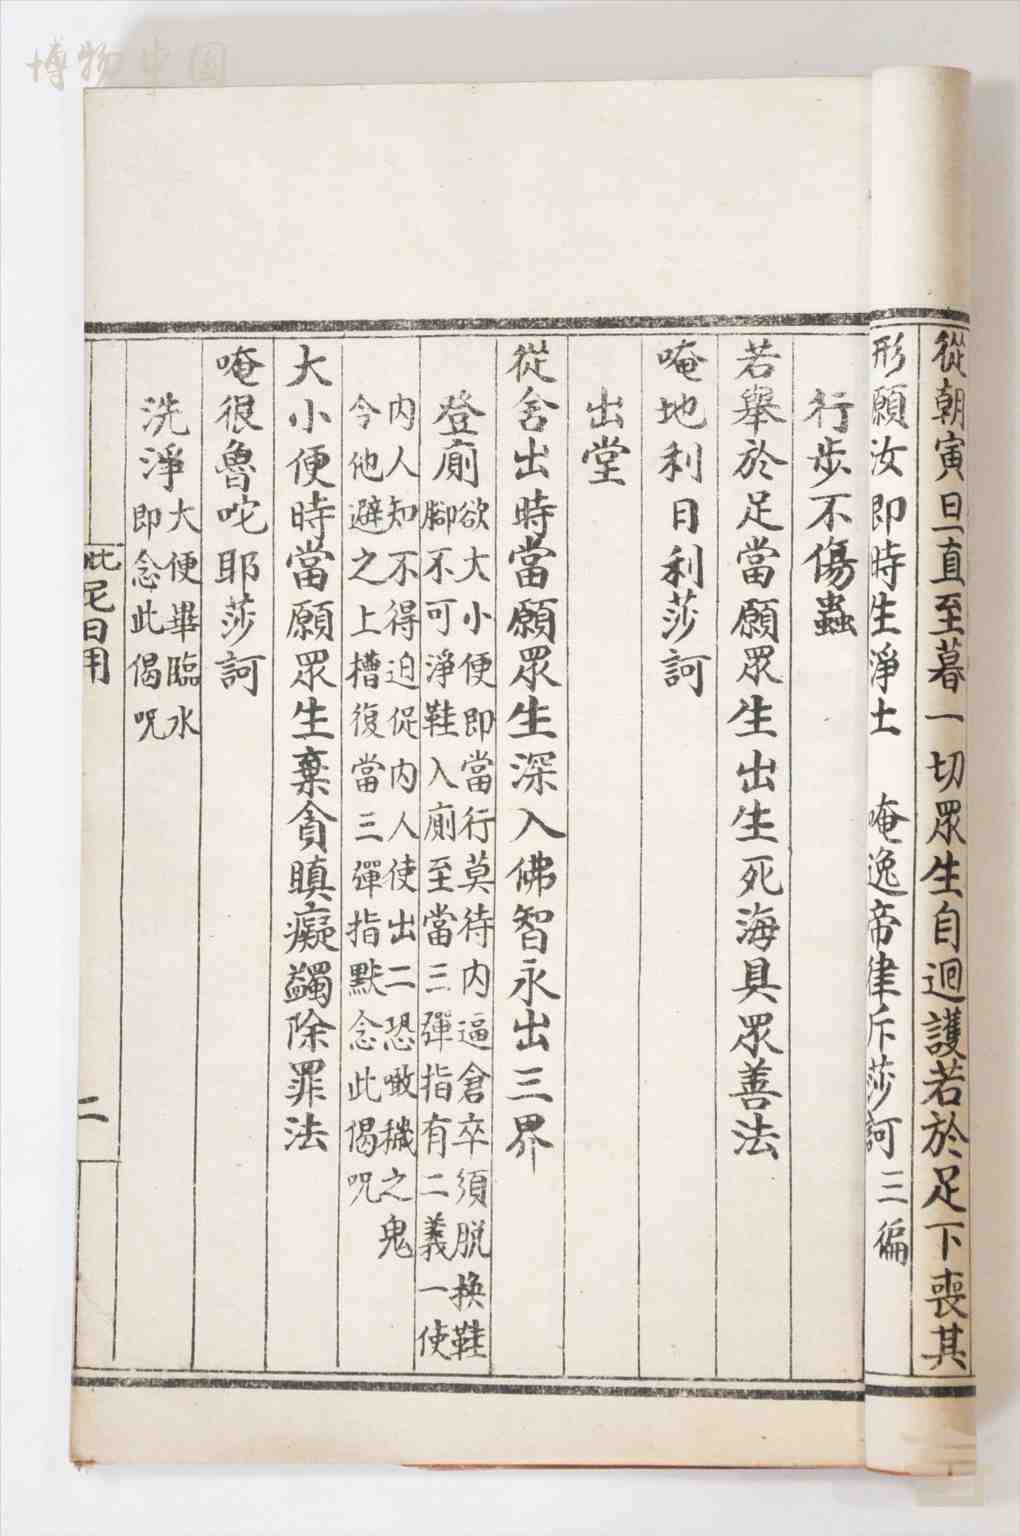 博物中国
從朝寅旦直至暮一切眾生自迴護若於足下喪其
形願汝即時生淨土 唵逸帝律斥莎訶 三徧
行步不傷蟲
若舉於足當願眾生出生死海具眾善法
唵地利日利莎訶
出堂
從舍出時當願眾生深入佛智永出三界
登廁
欲大小便即當行莫待內逼倉卒須脫換鞋
腳不可淨鞋入廁至當三彈指有二義一使
內人知不得迫促內人使出二恐噉穢之鬼
令他避之上槽復當三彈指默念此偈呪
大小便時當願眾生棄貪瞋癡蠲除罪法
唵很魯咜耶莎訶
洗淨
大便畢臨水
即念此偈呪
毗尼日用
二